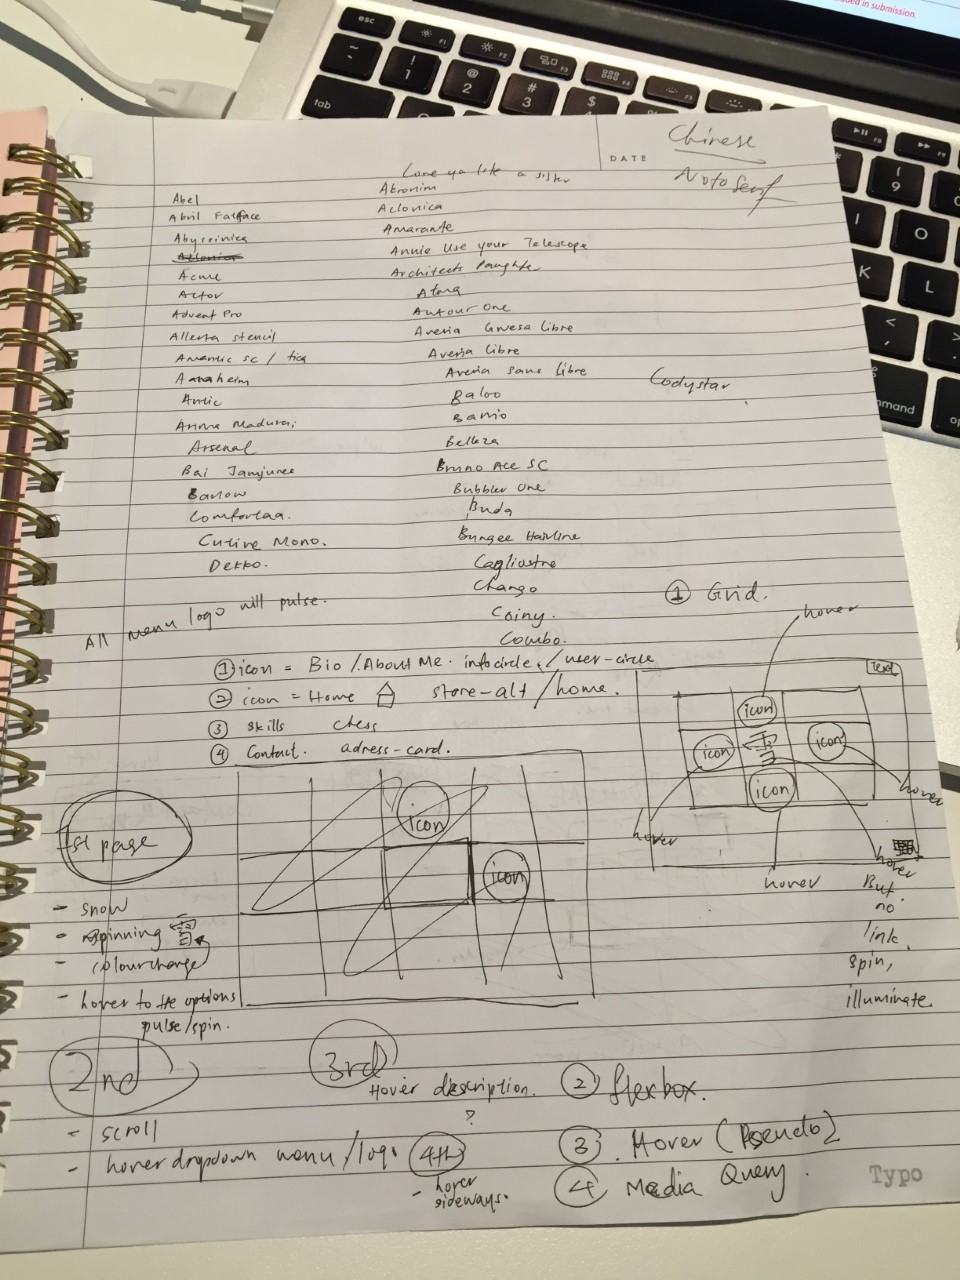 ded in submission.
esc
F1
F2
F3
F4
F5
F6
F9
~
!
1
@
2
#
3
$
tab
9
I
O
K
L
<
,
>
mmand
DATE
Chinese
Noto Serif
Love ya like a sister
Abel
Abril Fatface
Abyssinica
Acme
Actor
Advent Pro
Allerta stencil
Amatic SC /
Anaheim
Antic
Arima Madurai
Arsenal
Bai Jamjuree
Barlow
Comfortaa.
Cutive Mono.
Dekko.
Akronim
Aclonica
Amarante
Annie Use your Telescope
Architects Daughter
Atma
Autour One
Averia Gruesa Libre
Averia Libre
Averia Sans Libre
Baloo
Belleza
Bruno Ace SC
Bubbler One
Buda
Bungee Hairline
Cagliostro
Chango
Coiny.
Combo.
Codystar
All menu logo will pulse.
① icon = Bio / About Me. infocircle. / user-circle
② icon = Home store-alt / home.
③ skills chess
④ Contact. adress-card.
① Grid.
hover
Text
icon
icon 雪 icon
icon
hover
hover
hover
hover
But
no
link.
spin,
illuminate.
icon
icon
1st page
- snow
- spinning 雪
- colourchange
- hover to the options
pulse/spin.
2nd
- scroll
- hover dropdown menu/logo
3rd
Hover description.
?
4th
- hover
sideways.
② flexbox.
③. Hover (Pseudo)
④ Media Query.
Typo